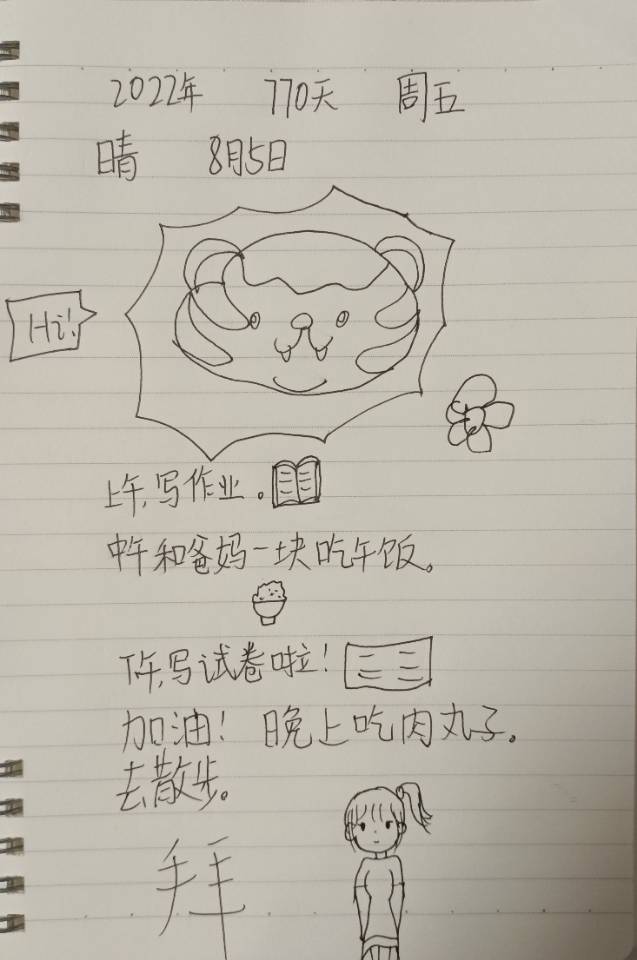 2022年 770天 周五
晴 8月5日
Hi!
上午,写作业。
中午和爸妈一块吃午饭。
下午,写试卷啦!
加油! 晚上吃肉丸子。
去散步。
拜